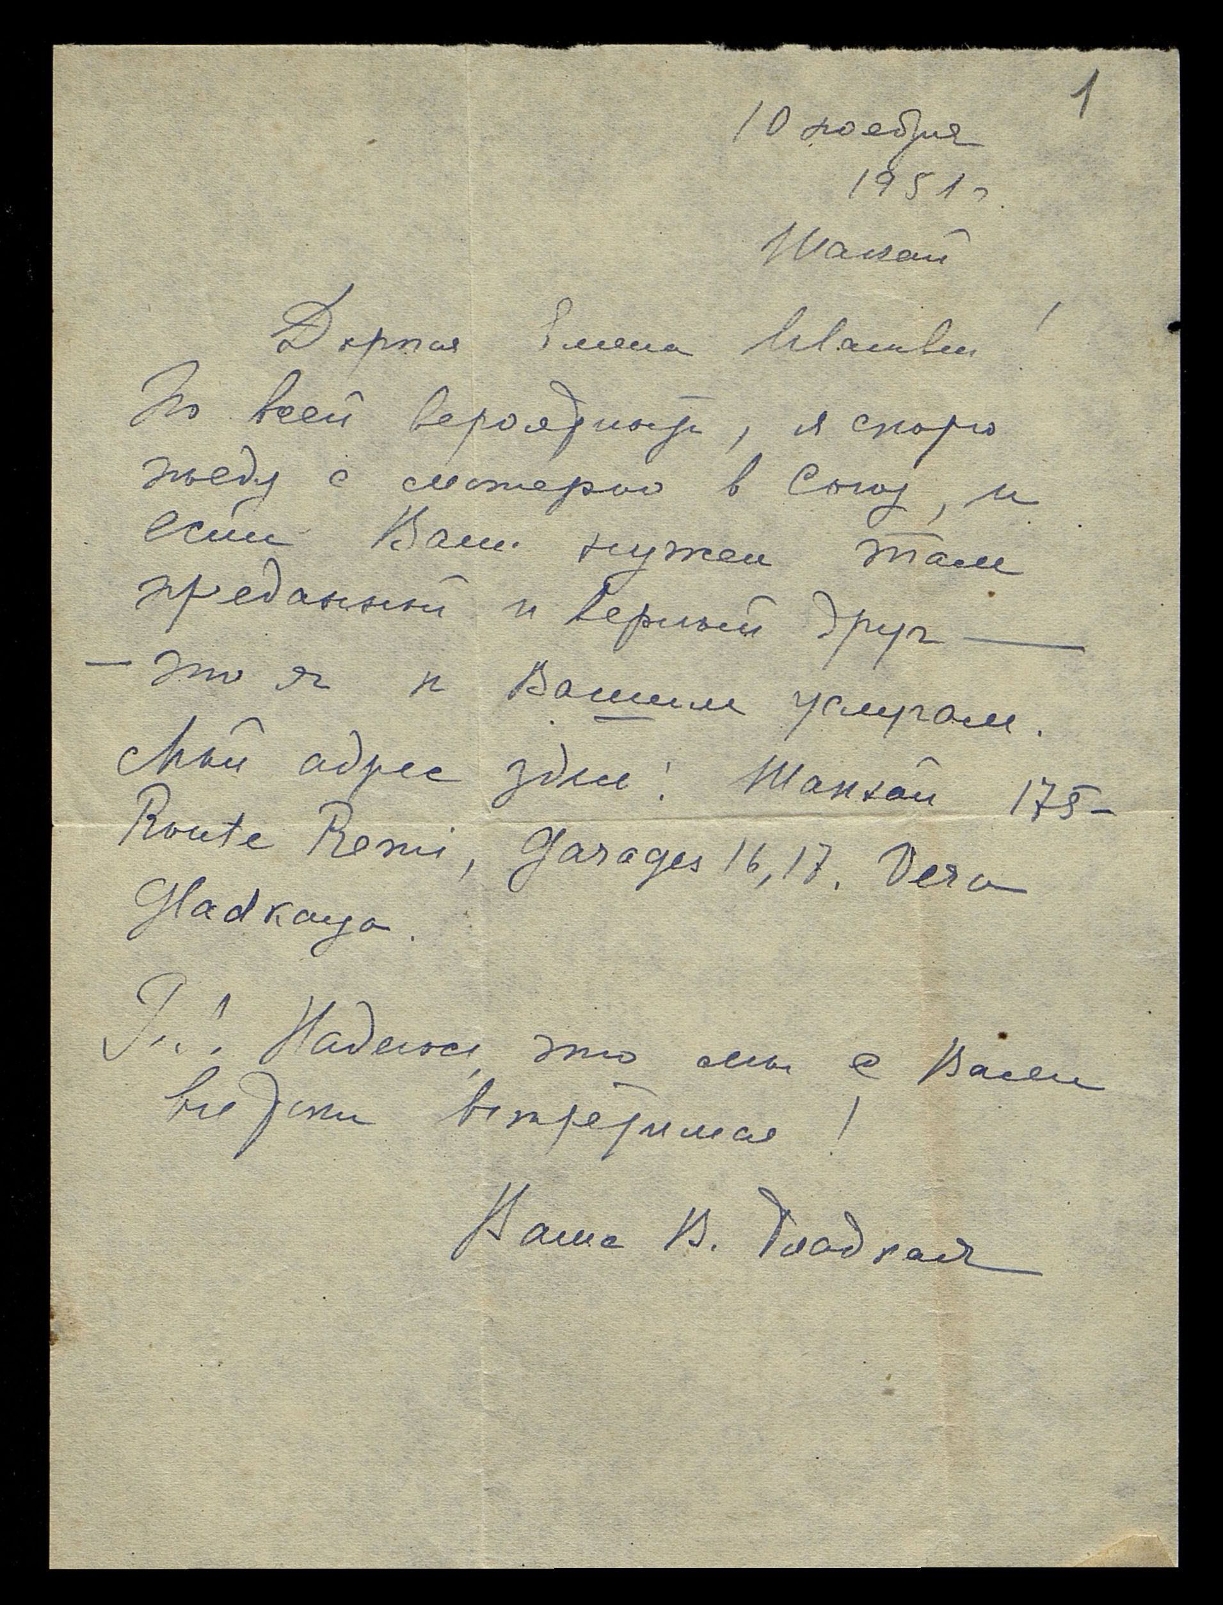 1
10 ноября
1951 г.
Шанхай
Дорогая Елена Ивановна!
По всей вероятности, я скоро
поеду с матерью в Союз, и
если Вам нужен там
преданный и верный друг —
— это я к Вашим услугам.
Мой адрес здесь: Шанхай 175-
Route Remi, Garages 16, 17. Vera
Gladkaya.
Надеюсь, что мы с Вами
всё-таки встретимся!
Ваша В. Гладкая